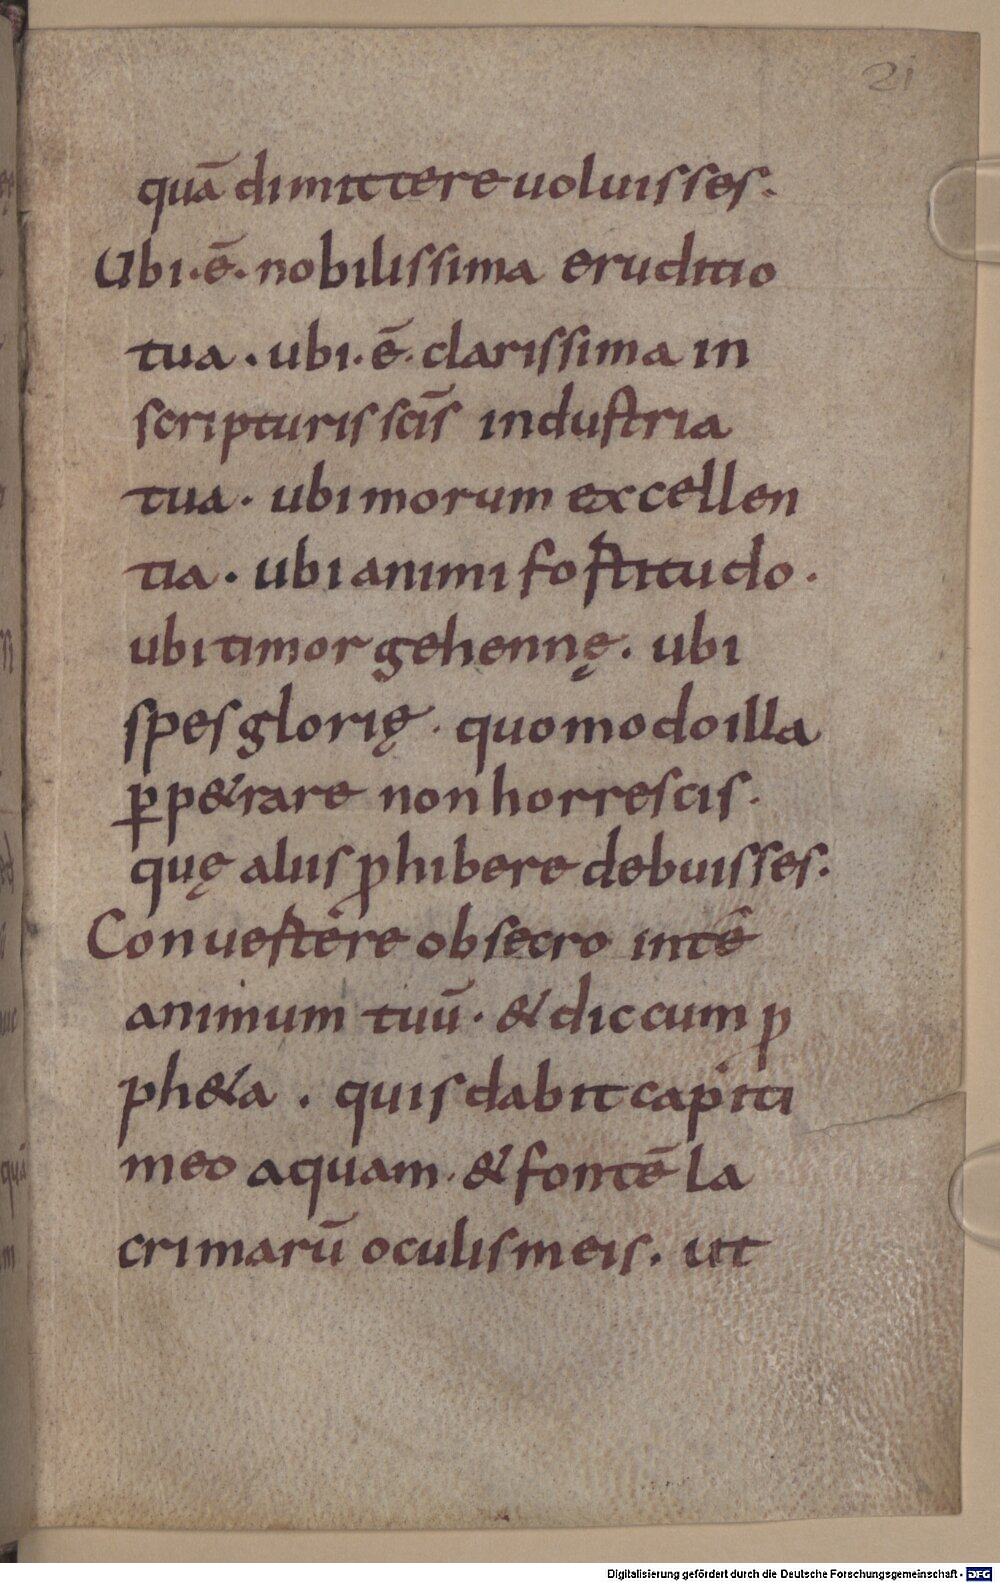 21
quā dimittere uoluisses.
Ubi·ē·nobilissima eruditio
tua. ubi·ē·clarissima in
scripturis scīs industria
tua. ubi morum excellen
tia. ubi animi fostitudo.
ubi timor gehennę. ubi
spes glorię. quomodo illa
ꝑp&rare non horrescis.
quę aliis ꝓhibere debuisses.
Conuestere obsecro intē
animum tuū. & dic cum ꝓ
ph&a. quis dabit capiti
meo aquam. & fontē la
crimarū oculis meis. ut
Digitalisierung gefördert durch die Deutsche Forschungsgemeinschaft - DFG